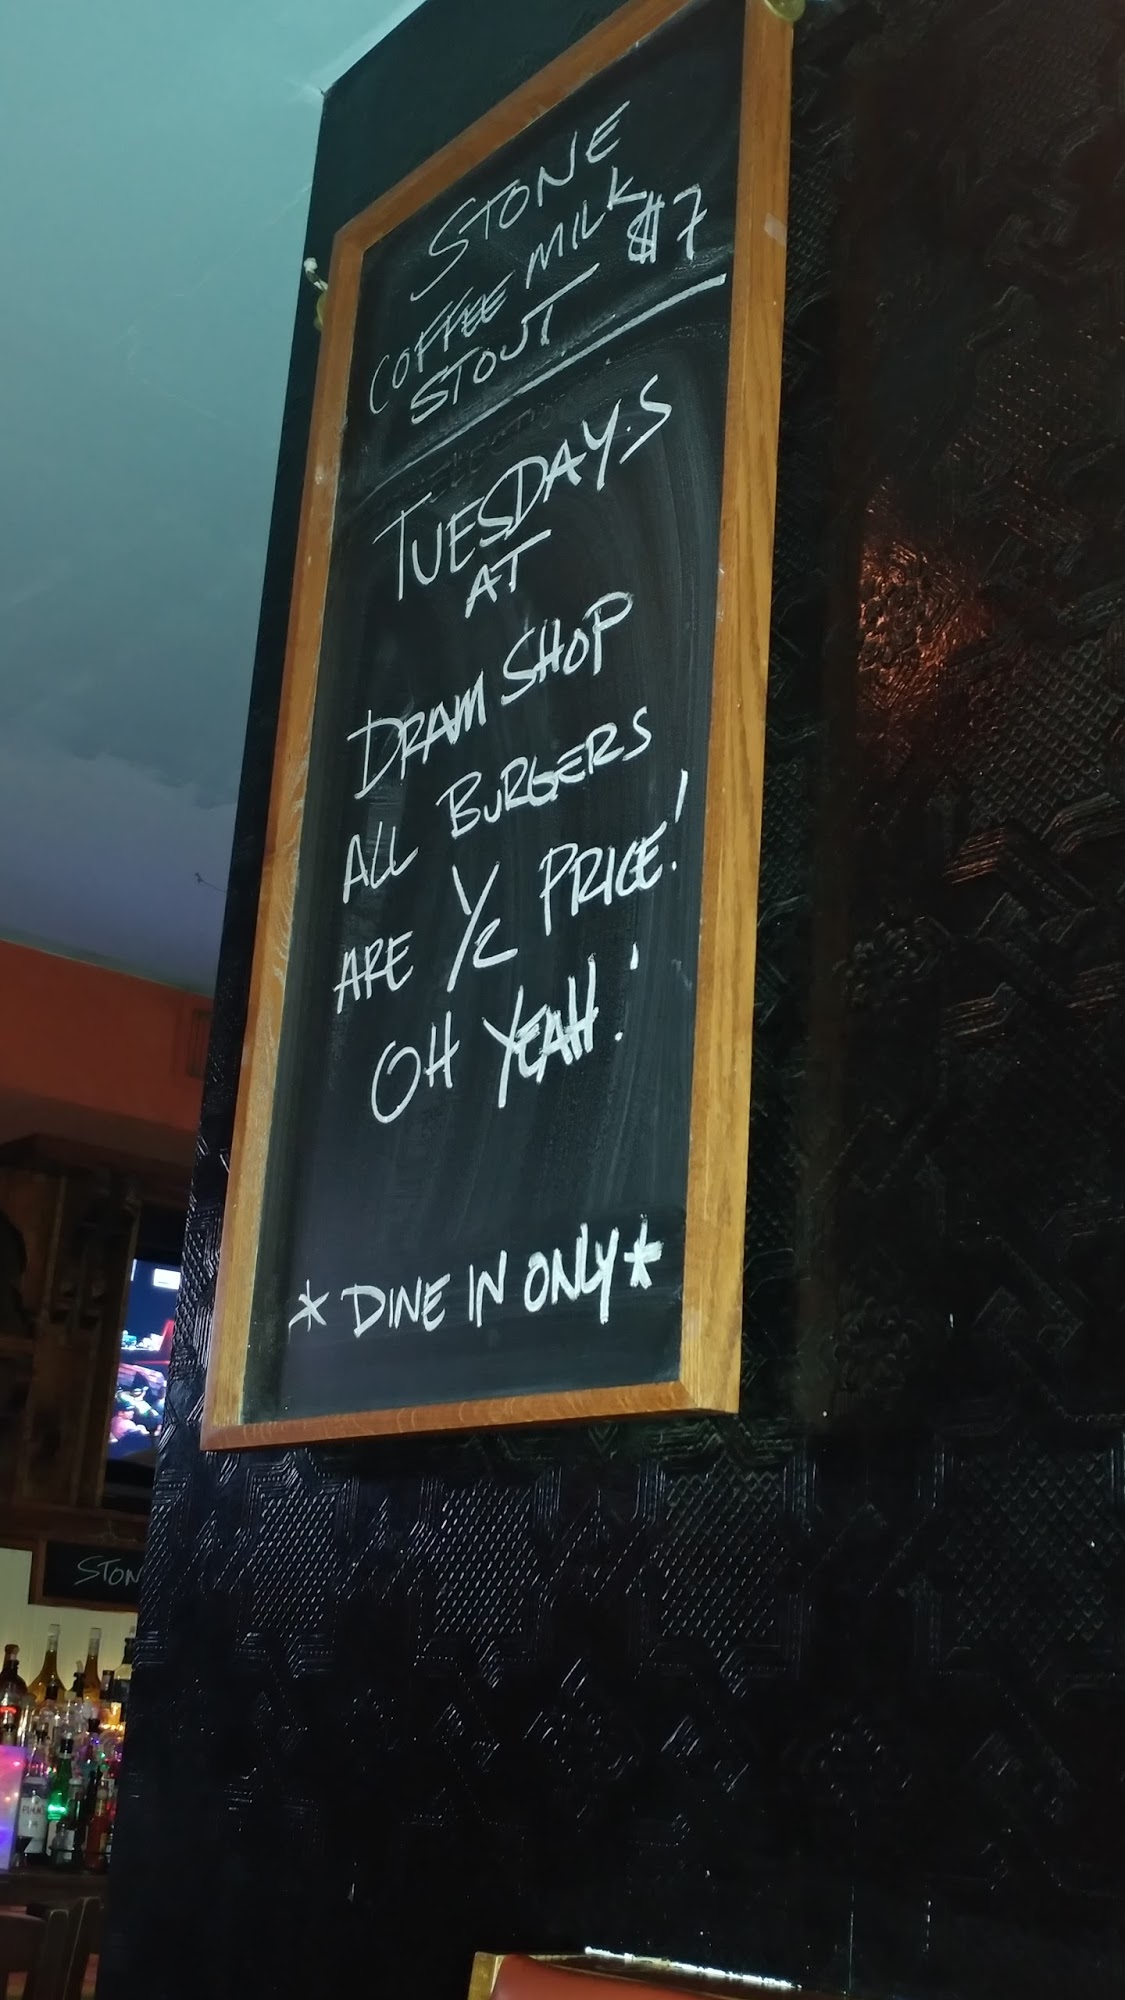 STONE
COFFEE MILK $7
STOUT
TUESDAYS
AT
DRAM SHOP
ALL BURGERS
ARE 1/2 PRICE!
OH YEAH!
* DINE IN ONLY *
STON